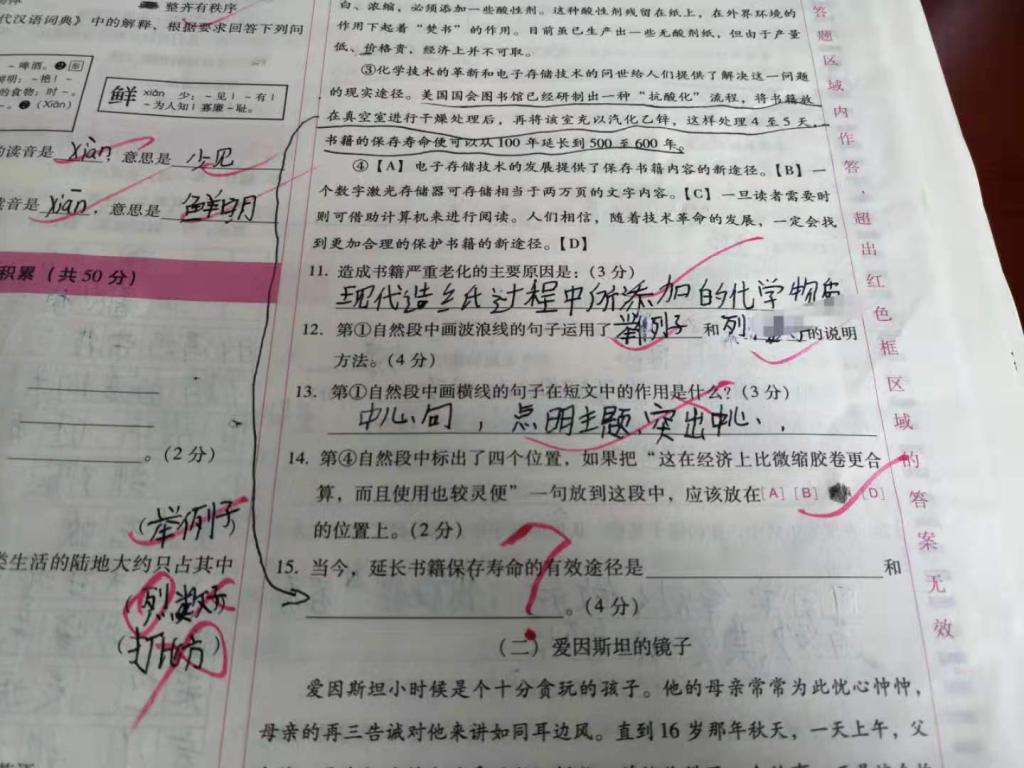 整齐有秩序
代汉语词典》中的解释,根据要求回答下列问
-啤酒。❷
明:-艳|-
的食物:时-。
-。❷(Xiān)
鲜 xiǎn 少:-见|-有|
-为人知|寡廉-耻。
的读音是 xiǎn,意思是 少见
读音是 xiān,意思是 鲜明
积累(共50分)
。(2分)
(举例子
类生活的陆地大约只占其中
(列数字
(打比方)
白、浓缩,必须添加一些酸性剂。这种酸性剂残留在纸上,在外界环境的
作用下起着“焚书”的作用。目前虽已生产出一些无酸剂纸,但由于产量
低、价格贵,经济上并不可取。
③化学技术的革新和电子存储技术的问世给人们提供了解决这一问题
的现实途径。美国国会图书馆已经研制出一种“抗酸化”流程,将书籍放
在真空室进行干燥处理后,再将该室充以汽化乙锌,这样处理4至5天,
书籍的保存寿命便可以从100年延长到500至600年。
④【A】电子存储技术的发展提供了保存书籍内容的新途径。【B】一
个数字激光存储器可存储相当于两万页的文字内容。【C】一旦读者需要时
则可借助计算机来进行阅读。人们相信,随着技术革命的发展,一定会找
到更加合理的保护书籍的新途径。【D】
11. 造成书籍严重老化的主要原因是:(3分)
现代造纸过程中所添加的化学物质
12. 第①自然段中画波浪线的句子运用了 举例子 和 列 的说明
方法。(4分)
13. 第①自然段中画横线的句子在短文中的作用是什么?(3分)
中心句,点明主题、突出中心.
14. 第④自然段中标出了四个位置,如果把“这在经济上比微缩胶卷更合
算,而且使用也较灵便”一句放到这段中,应该放在[A] [B] [D]
的位置上。(2分)
15. 当今,延长书籍保存寿命的有效途径是 和
。(4分)
(二)爱因斯坦的镜子
爱因斯坦小时候是个十分贪玩的孩子。他的母亲常常为此忧心忡忡,
母亲的再三告诫对他来讲如同耳边风。直到16岁那年秋天,一天上午,父
答题区域内作答,超出红色框区域的答案无效